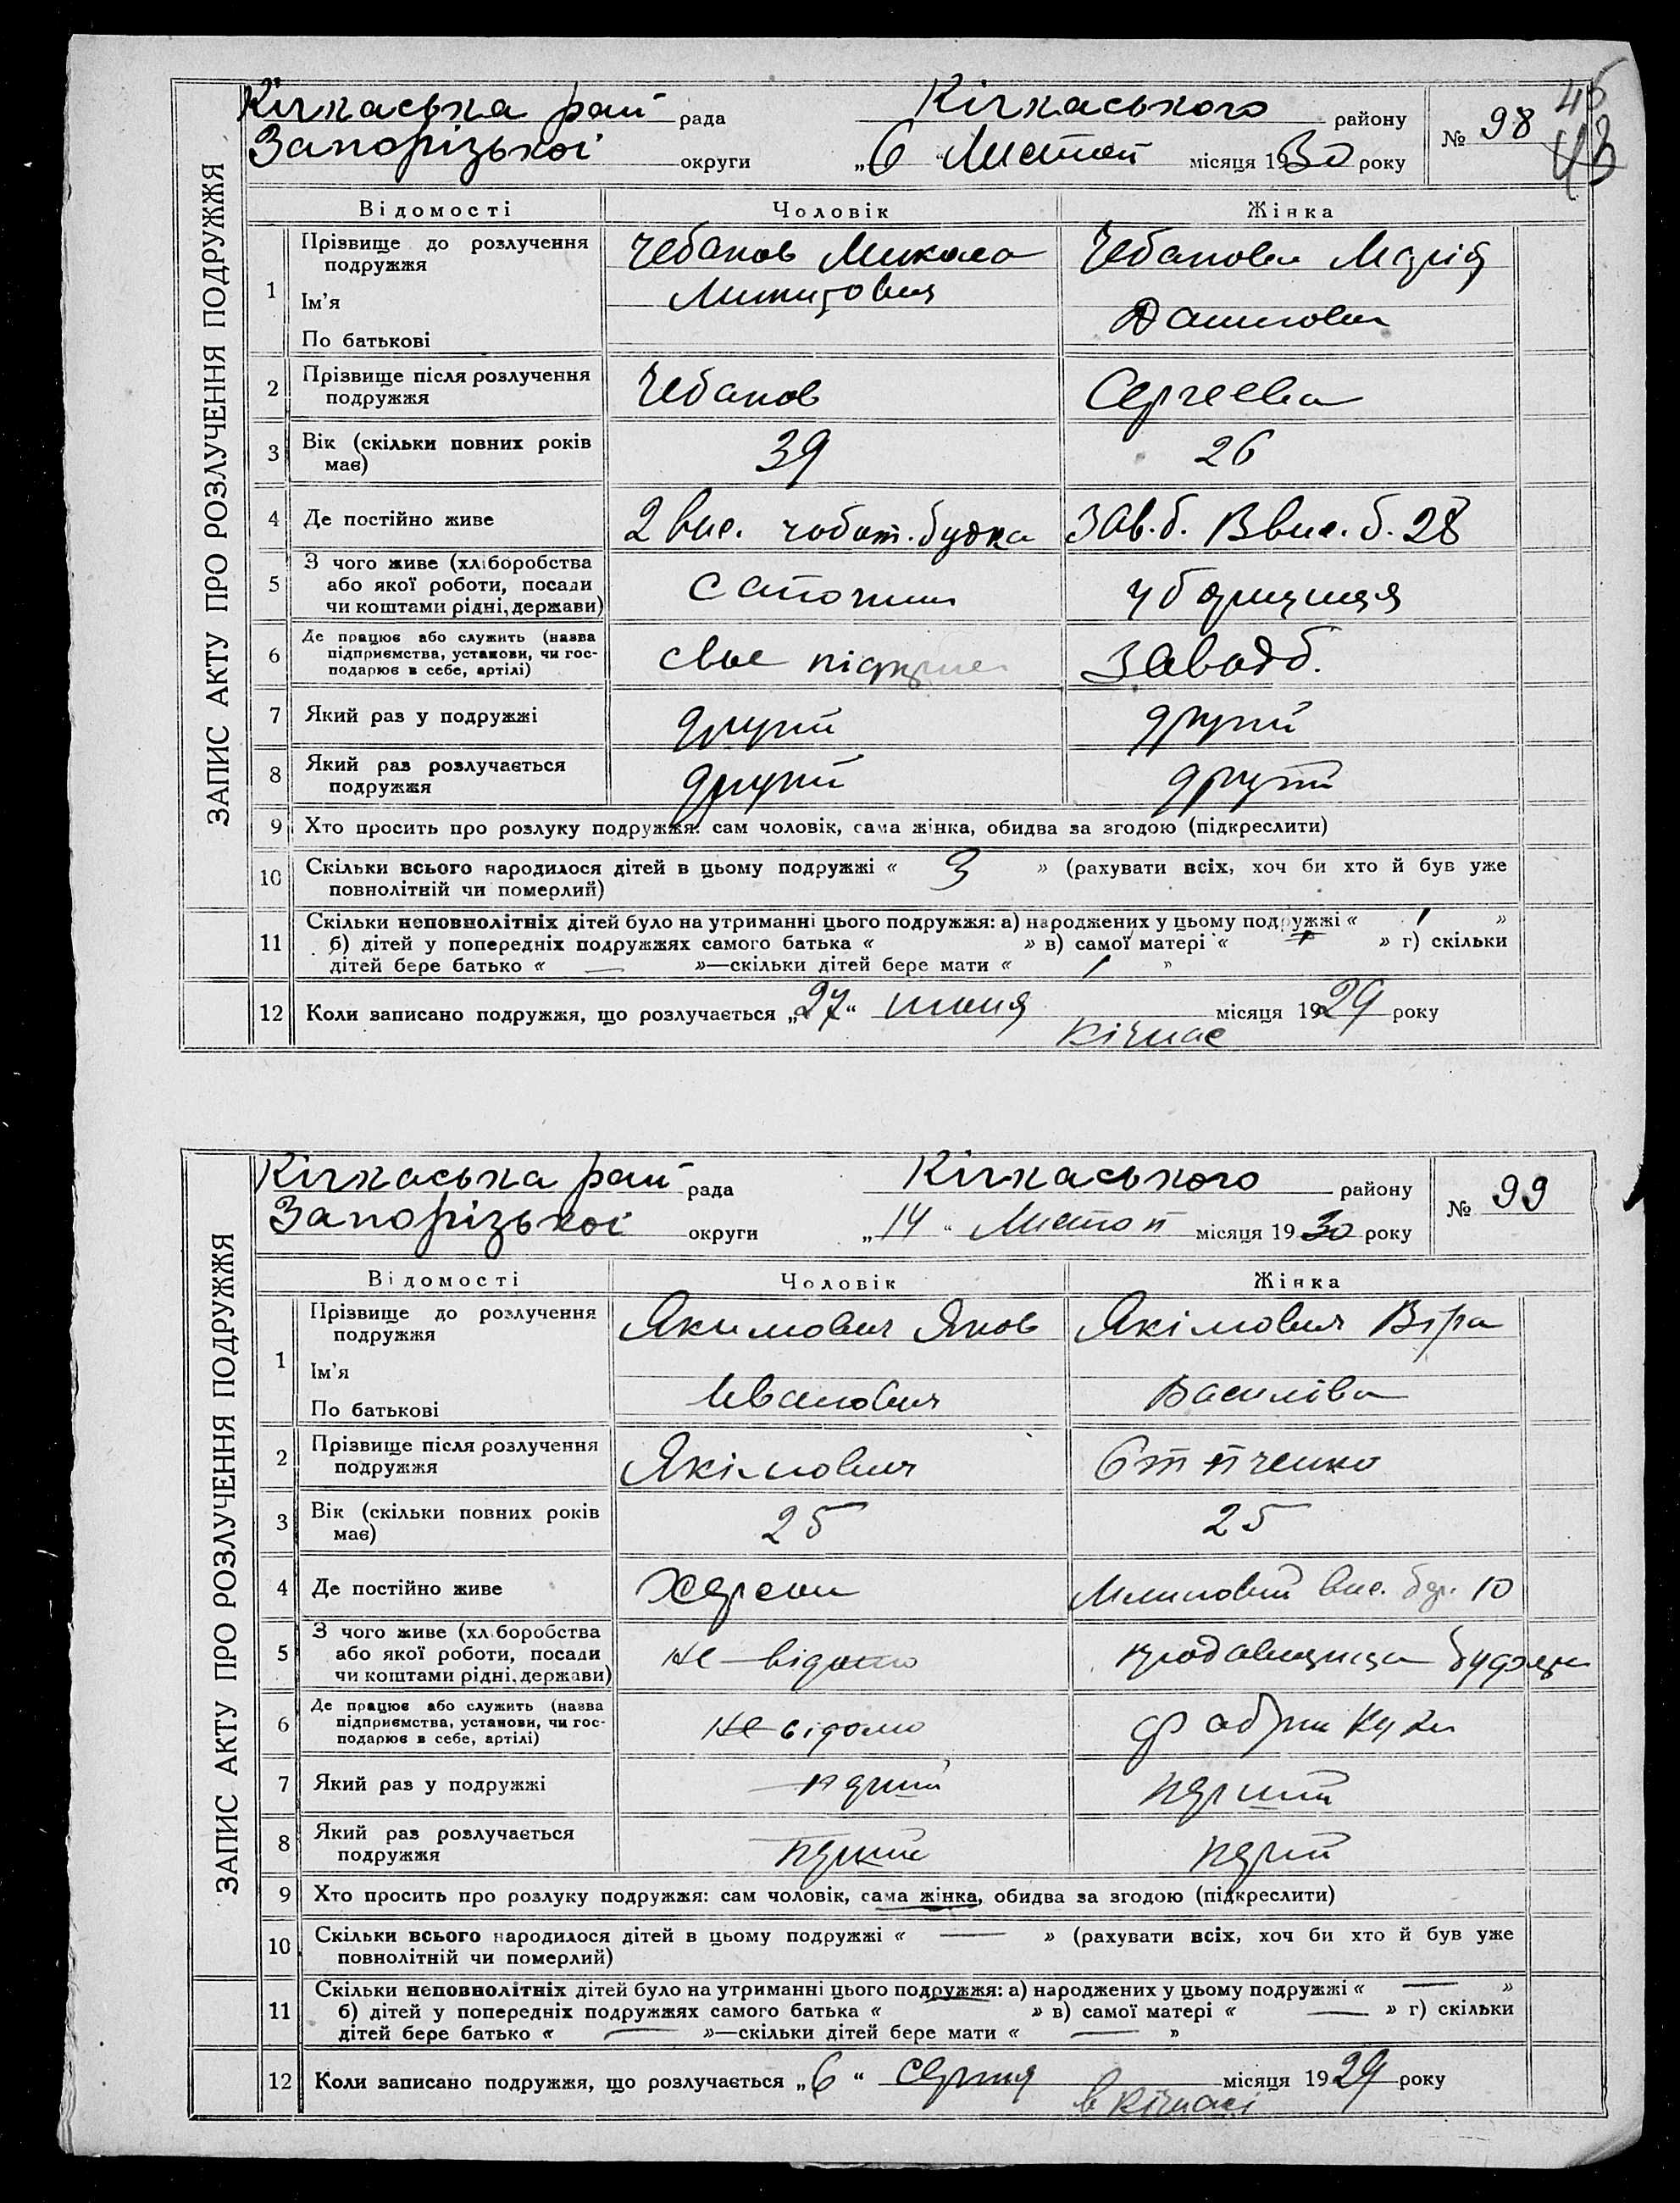 45
43
ЗАПИС АКТУ ПРО РОЗЛУЧЕННЯ ПОДРУЖЖЯ
Кічкаська рай рада Кічкаського району № 98
Запорізької округи „6“ Листоп місяця 1930 року
Відомості Чоловік Жінка
1 Прізвище до розлучення подружжя Чебанов Микола Чебанова Марія
Ім'я
По батькові Данилова
2 Прізвище після розлучення подружжя Чебанов Сергеева
3 Вік (скільки повних років має) 39 26
4 Де постійно живе 2 вис. чобот. будка Зав. б. В вис. б. 28
5 З чого живе (хліборобства або якої роботи, посади чи коштами рідні, держави) сапожник уборщиця
6 Де працює або служить (назва підприємства, установи, чи господарює в себе, артілі) свое Заводб.
7 Який раз у подружжі другий другий
8 Який раз розлучається подружжя другий другий
9 Хто просить про розлуку подружжя: сам чоловік, сама жінка, обидва за згодою (підкреслити)
10 Скільки всього народилося дітей в цьому подружжі « 3 » (рахувати всіх, хоч би хто й був уже
повнолітній чи померлий)
11 Скільки неповнолітніх дітей було на утриманні цього подружжя: а) народжених у цьому подружжі « 1 »
б) дітей у попередніх подружжях самого батька « » в) самої матері « » г) скільки
дітей бере батько « — »—скільки дітей бере мати « 1 »
12 Коли записано подружжя, що розлучається „27“ июня місяця 1929 року
Кічкас
ЗАПИС АКТУ ПРО РОЗЛУЧЕННЯ ПОДРУЖЖЯ
Кічкаська рай рада Кічкаського району № 99
Запорізької округи „14“ Листоп місяця 1930 року
Відомості Чоловік Жінка
1 Прізвище до розлучення подружжя Якимович Яков Якімович Віра
Ім'я
По батькові Иванович Василівна
2 Прізвище після розлучення подружжя Якімович
3 Вік (скільки повних років має) 25 25
4 Де постійно живе Херсон вис. 10
5 З чого живе (хліборобства або якої роботи, посади чи коштами рідні, держави) не відомо продавщица
6 Де працює або служить (назва підприємства, установи, чи господарює в себе, артілі) не відомо фабрики кухн
7 Який раз у подружжі перший перший
8 Який раз розлучається подружжя перший перший
9 Хто просить про розлуку подружжя: сам чоловік, сама жінка, обидва за згодою (підкреслити)
10 Скільки всього народилося дітей в цьому подружжі « — » (рахувати всіх, хоч би хто й був уже
повнолітній чи померлий)
11 Скільки неповнолітніх дітей було на утриманні цього подружжя: а) народжених у цьому подружжі « — »
б) дітей у попередніх подружжях самого батька « » в) самої матері « — » г) скільки
дітей бере батько « — »—скільки дітей бере мати « — »
12 Коли записано подружжя, що розлучається „6“ серпня місяця 1929 року
в Кічкасі